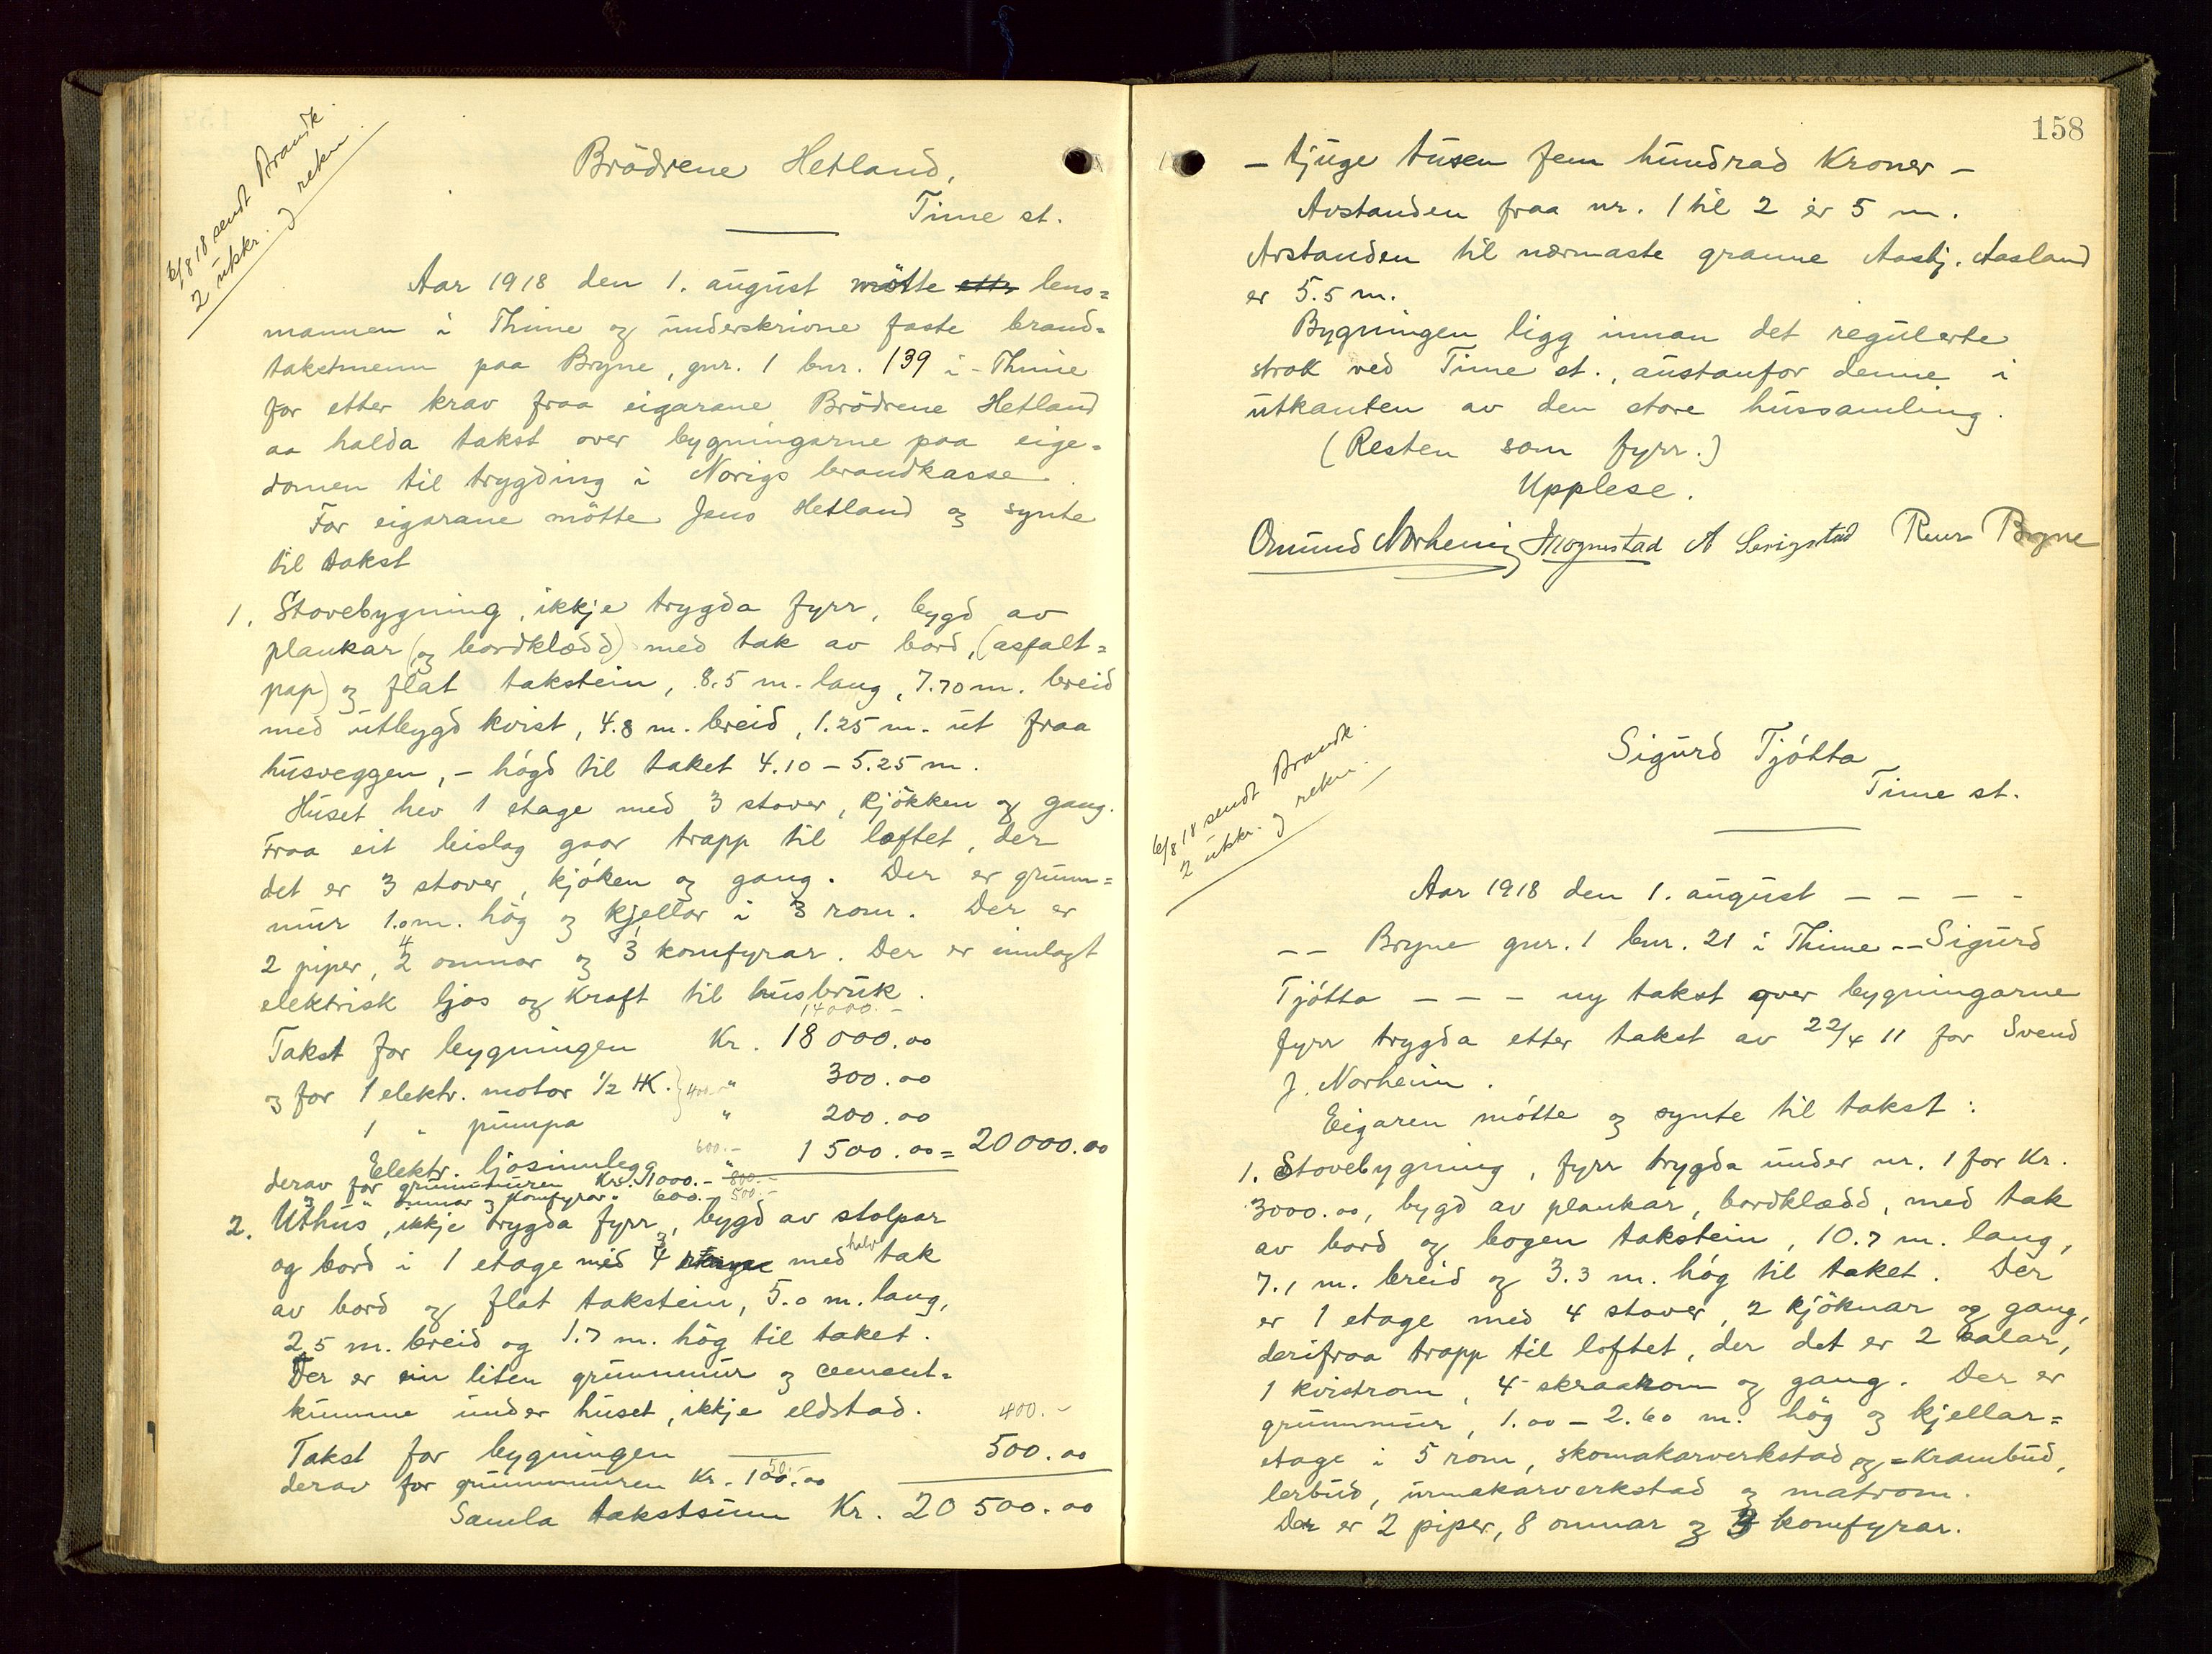 6/8 18 sendt Brandk.
2 utskr. og rekn.
Brödrene Hetland,
Time st.
Aar 1918 den 1. august mötte lens=
mannen i Thime og underskrivne faste brand=
takstmenn paa Bryne, gnr. 1 bnr. 139 i Thime
for etter krav fraa eigarane Brödrene Hetland
aa halda takst over bygningarne paa eige=
domen til trygding i Norigs brandkasse.
For eigarane mötte Jens Hetland og synte
til takst
1. Stovebygning, ikkje trygda fyrr, bygd av
plankar (og bordklædd) med tak av bord, (asfalt=
pap) og flat takstein, 8.5 m. lang, 7.70 m. breid
med utbygd kvist, 4.8 m. breid, 1.25 m. ut fraa
husveggen, - högd til taket 4.10 - 5.25 m.
Huset hev 1 etage med 3 stover, kjökken og gang.
Fraa eit bislag gaar trapp til loftet, der
det er 3 stover, kjöken og gang. Der er grunn=
mur 1.0 m. hög og kjellar i 3 rom. Der er
4 1
2 piper, 2 omnar og 3 komfyrar. Der er innlagt
elektrisk ljos og kraft til husbruk.
14000.-
Takst for bygningen Kr. 18 000.00
og for 1 elektr. motor 1/2 HK. } 400.- " 300.00
1 " pumpa " 200.00
Elektr. ljosinnlegg 600.- " 1 500.00 = 20 000.00
derav for grunnmuren Kr. 1000.- 800.-
og " omnar og komfyrar " 600.- 500.-
2. Uthus, ikkje trygda fyrr, bygd av stolpar
og bord i 1 etage med 4 med halv tak
av bord og flat takstein, 5.0 m. lang,
2.5 m. breid og 1.7 m. hög til taket.
Der er ein liten grunnmur og cement=
kumme under huset, ikkje eldstad.
400.-
Takst for bygningen 500.00
50.-
derav for grunnmuren Kr. 100.00
Samla takstsum Kr. 20 500.00
158
- tjuge tusen fem hundrad Kroner -
Avstanden fraa nr. 1 til 2 er 5 m.
Avstanden til nærmaste granne Aasbj. Aasland
er 5.5 m.
Bygningen ligg innan det regulerte
strok ved Time st., austanfor denne i
utkanten av den store hussamling.
(Resten som fyrr.)
Upplese.
Omund Norheim Mognestad A Serigstad Bryne
6/8 18 sendt Brandk.
2 utskr. og rekn.
Sigurd Tjötta
Time st.
Aar 1918 den 1. august - - - -
- - Bryne gnr. 1 bnr. 21 i Thime - - Sigurd
Tjötta - - - ny takst over bygningarne
fyrr trygda etter takst av 22/4 11 for Svend
J. Norheim.
Eigaren mötte og synte til takst:
1. Stovebygning, fyrr trygda under nr. 1 for Kr.
3000.00, bygd av plankar, bordklædd, med tak
av bord og bogen takstein, 10.7 m. lang,
7.1 m. breid og 3.3 m. hög til taket. Der
er 1 etage med 4 stover, 2 kjöknar og gang,
derifraa trapp til loftet, der det er 2 salar,
1 kvistrom, 4 skraarom og gang. Der er
grunnmur, 1.00 - 2.60 m. hög og kjellar=
etage i 5 rom, skomakarverkstad og = krambud,
lerbud, urmakarverkstad og matrom.
Der er 2 piper, 8 omnar og 3 komfyrar.